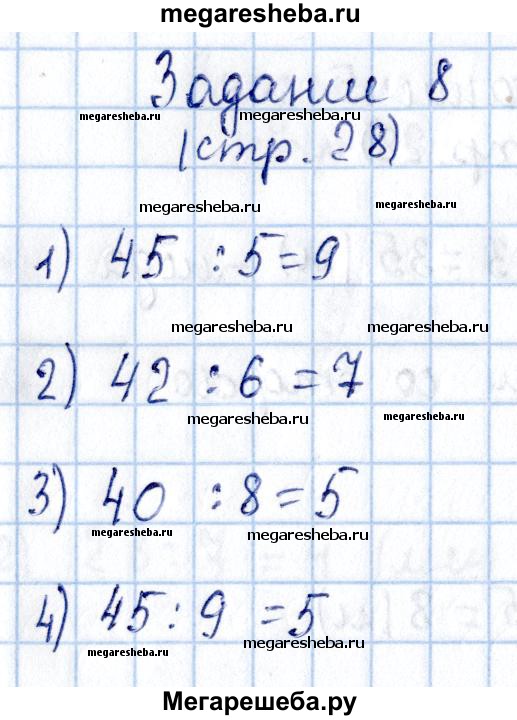 megaresheba.ru
Задание 8
megaresheba.ru megaresheba.ru
(стр. 28)
megaresheba.ru megaresheba.ru
1) 45 : 5 = 9
megaresheba.ru megaresheba.ru
2) 42 : 6 = 7
megaresheba.ru megaresheba.ru
3) 40 : 8 = 5
megaresheba.ru megaresheba.ru
4) 45 : 9 = 5
megaresheba.ru megaresheba.ru
Мегарешеба.ру